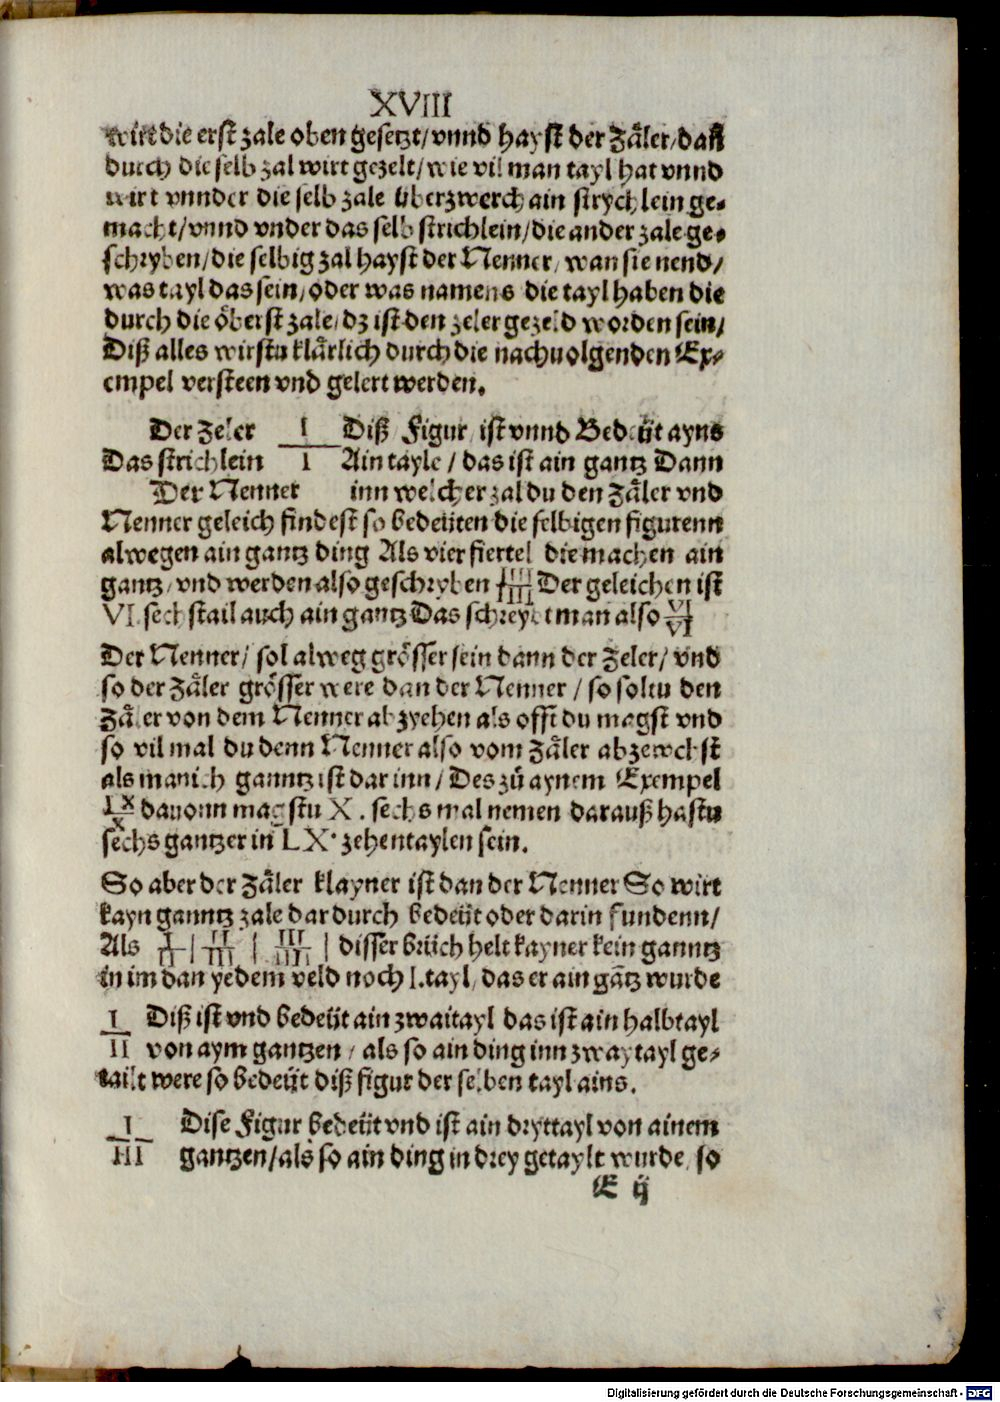 XVIII
wirt die erst zale oben gesetzt/ vnnd hayst der Zåler/ dañ
durch die selb zal wirt gezelt/ wie vil man tayl hat vnnd
wirt vnnder die selb zale überzwerch ain strychlein ge⸗
macht/ vnnd vnder das selb strichlein/ die ander zale ge⸗
schryben/ die selbig zal hayst der Nenner/ wan sie nend/
was tayl das sein/ oder was namens die tayl haben die
durch die öberst zale/ dz ist den zeler gezeld worden sein/
Diß alles wirstu klårlich durch die nachuolgenden Ex⸗
empel versteen vnd gelert werden.
Der Zeler I Diß Figur/ ist vnnd Bedeüt ayns
Das strichlein — I Ain tayle/ das ist ain gantz Dann
Der Nenner inn welcher zal du den Zåler vnd
Nenner geleich findest so bedeüten die selbigen figurenn
alwegen ain gantz ding Als vier fiertel die machen ain
gantz/ vnd werden also geschryben IIII/IIII Der geleichen ist
VI. sechstail auch ain gantz Das schreybt man also VI/VI
Der Nenner/ sol alweg grösser sein dann der Zeler/ vnd
so der Zåler grösser were dan der Nenner/ so soltu den
Zåler von dem Nenner abzyehen als offt du magst vnd
so vil mal du denn Nenner also vom Zåler abzewchst
als manich ganntz ist darinn/ Des zů aynem Exempel
LX/X dauonn magstu X. sechs mal nemen darauß hastu
sechs gantzer in LX. zehentaylen sein.
So aber der Zåler klayner ist dan der Nenner So wirt
kayn ganntz zale dardurch bedeüt oder darin fundenn/
Als I/II | II/III | III/IIII | disser brüch helt kayner kein ganntz
in im dan yedem veld noch I. tayl/ das er ain gãtz wurde
I Diß ist vnd bedeüt ain zwaitayl das ist ain halbtayl
II von aym gantzen/ als so ain ding inn zway tayl ge⸗
tailt were so bedeüt diß figur der selben tayl ains.
I Dise Figur bedeüt vnd ist ain dryttayl von ainem
III gantzen/ als so ain ding in drey getaylt wurde/ so
E ij
Digitalisierung gefördert durch die Deutsche Forschungsgemeinschaft - DFG